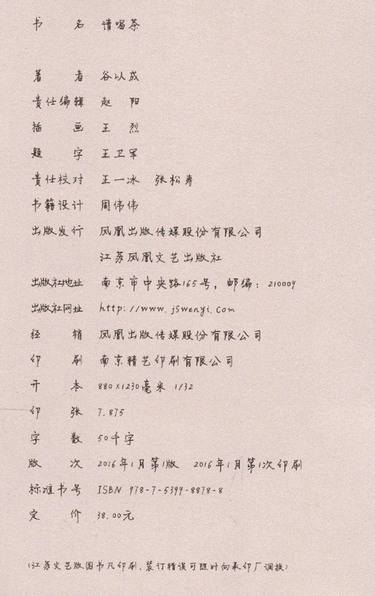 书名 请喝茶
著者 谷以成
责任编辑 赵阳
插画 王烈
题字 王卫军
责任校对 王一冰 张松寿
书籍设计 周伟伟
出版发行 凤凰出版传媒股份有限公司
江苏凤凰文艺出版社
出版社地址 南京市中央路165号，邮编：210009
出版社网址 http://www.jswenyi.com
经销 凤凰出版传媒股份有限公司
印刷 南京精艺印刷有限公司
开本 880×1230毫米 1/32
印张 7.875
字数 50千字
版次 2016年1月第1版 2016年1月第1次印刷
标准书号 ISBN 978-7-5399-8878-8
定价 38.00元
(江苏文艺版图书凡印刷、装订错误可随时向承印厂调换)